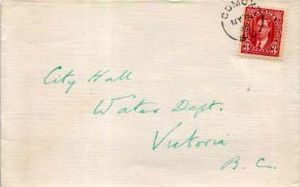 COMOX
3 3
City Hall
Water Dept.
Victoria
B.C.